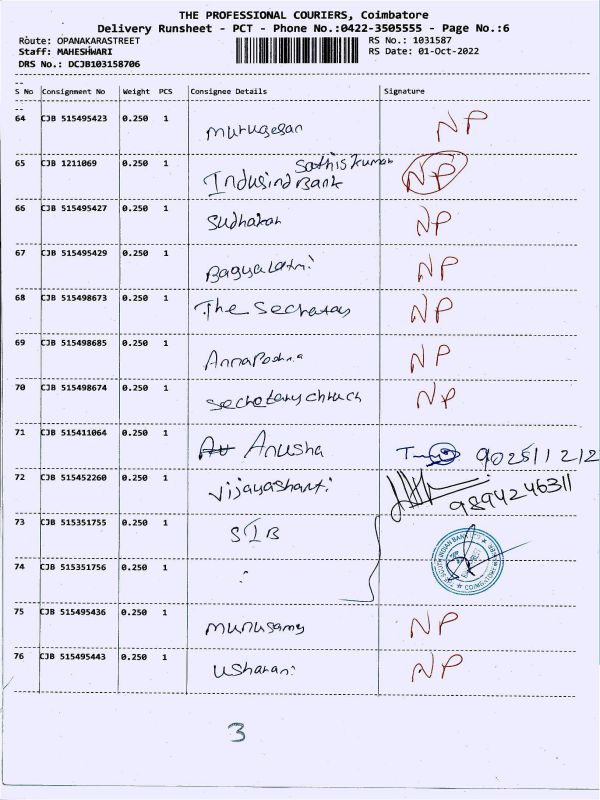 THE PROFESSIONAL COURIERS, Coimbatore
Delivery Runsheet - PCT - Phone No.:0422-3505555 - Page No.:6
Route: OPANAKARASTREET RS No.: 1031587
Staff: MAHESHWARI RS Date: 01-Oct-2022
DRS No.: DCJB103158706
--
S No Consignment No Weight PCS Consignee Details Signature
--
64 CJB 515495423 0.250 1 Murugesan NP
65 CJB 1211069 0.250 1 Sathiskumar NP
Indusind Bank
66 CJB 515495427 0.250 1 Sudhakar NP
67 CJB 515495429 0.250 1 NP
68 CJB 515498673 0.250 1 The Secretary NP
69 CJB 515498685 0.250 1 NP
70 CJB 515498674 0.250 1 Secretary NP
71 CJB 515411064 0.250 1 Anusha
72 CJB 515452260 0.250 1 Vijayashanti 9894246311
73 CJB 515351755 0.250 1 SIB
SOUTH INDIAN BANK
COIMBATORE
74 CJB 515351756 0.250 1 :
75 CJB 515495436 0.250 1 Munusamy NP
76 CJB 515495443 0.250 1 Usharani NP
3